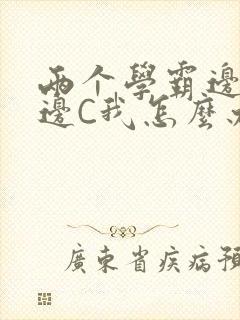 两个學霸邊
邊C我怎麼
廣東省疾病預